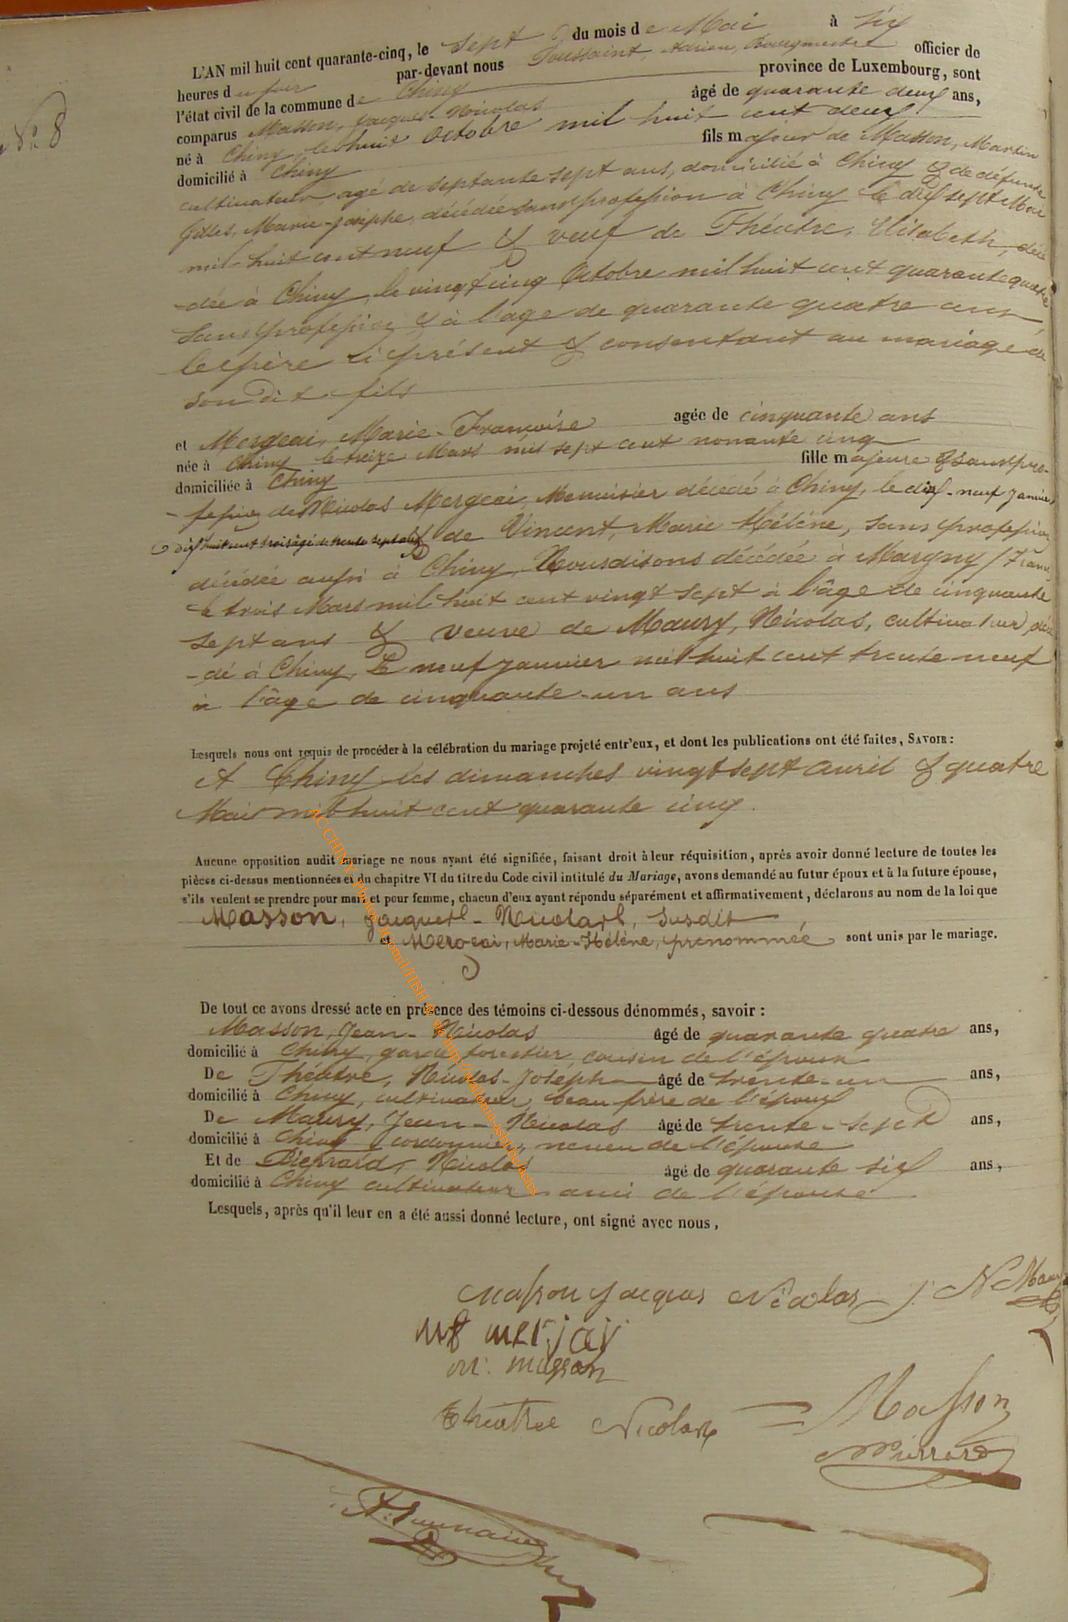 N° 8
L'AN mil huit cent quarante-cinq, le sept du mois de Mai à six
heures du soir par-devant nous Toussaint, Adrien, Bourgmestre officier de
l'état civil de la commune de Chiny province de Luxembourg, sont
comparus Masson, Jacques Nicolas âgé de quarante deux ans,
né à Chiny, le huit Octobre mil huit cent deux
domicilié à Chiny fils majeur de Masson, Martin
cultivateur agé de septante sept ans, domicilié à Chiny & de défunte
Gilles, Marie-Josèphe, décédée sans profession à Chiny le dix sept Mai
mil huit cent neuf & veuf de Théatre, Elisabeth, décé
-dée à Chiny, le vingt cinq Octobre mil huit cent quarante quatre
sans profession & à l'age de quarante quatre ans,
le père ici présent & consentant au mariage de
son dit fils
et Mergeai, Marie-Françoise agée de cinquante ans
née à Chiny le treize Mars mil sept cent nonante cinq
domiciliée à Chiny fille majeure & sans pro-
-fession de Nicolas Mergeai, Menuisier décédé à Chiny, le dix-neuf janvier
dix huit cent trois âgé de trente sept ans & de Vincent, Marie Hélène, sans profession
décédée aussi à Chiny, Nous disons décédée à Margny /France
le trois Mars mil huit cent vingt sept à l'âge de cinquante
sept ans & veuve de Maury, Nicolas, cultivateur, décé
-dé à Chiny, Le neuf janvier mil huit cent trente neuf
à l'âge de cinquante-un ans
Lesquels nous ont requis de procéder à la célébration du mariage projeté entr'eux, et dont les publications ont été faites, SAVOIR:
A Chiny les dimanches vingt sept avril & quatre
Mai mil huit cent quarante cinq.
Aucune opposition audit mariage ne nous ayant été signifiée, faisant droit à leur réquisition, après avoir donné lecture de toutes les
pièces ci-dessus mentionnées et du chapitre VI du titre du Code civil intitulé du Mariage, avons demandé au futur époux et à la future épouse,
s'ils veulent se prendre pour mari et pour femme, chacun d'eux ayant répondu séparément et affirmativement, déclarons au nom de la loi que
Masson, Jacques-Nicolas, susdit
et Mergeai, Marie-Hélène, prénommée sont unis par le mariage.
De tout ce avons dressé acte en présence des témoins ci-dessous dénommés, savoir:
Masson, Jean-Nicolas âgé de quarante quatre ans,
domicilié à Chiny, garde forestier, cousin de l'époux
De Théatre, Nicolas-Joseph âgé de trente-un ans,
domicilié à Chiny, cultivateur, beau frère de l'époux
De Maury, Jean-Nicolas âgé de trente-sept ans,
domicilié à Chiny cordonnier, neveu de l'épouse
Et de Pierrard, Nicolas âgé de quarante six ans,
domicilié à Chiny cultivateur ami de l'épouse
Lesquels, après qu'il leur en a été aussi donné lecture, ont signé avec nous,
Masson Jacques Nicolas J. N Maury
mf merjay
M: masson
théatre Nicolas Masson
Pierrard